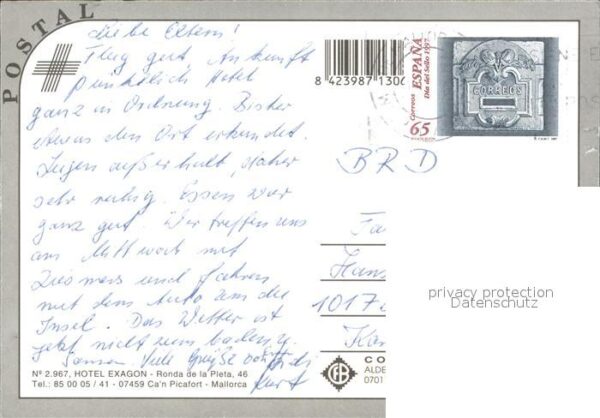 POSTAL
Liebe Eltern!
Flug gut, Ankunft
pünktlich Hotel
ganz in Ordnung. Bisher
etwas den Ort erkundet.
Liegen außerhalb, daher
sehr ruhig. Essen war
ganz gut. Wir treffen uns
am Mittwoch mit
und fahren
mit dem Auto um die
Insel. Das Wetter ist
jetzt nicht zum baden
Sonne. Viele Grüße
Kurt
Nº 2.967, HOTEL EXAGON - Ronda de la Pleta, 46
Tel.: 85 00 05 / 41 - 07459 Ca'n Picafort - Mallorca
8 423987 1306
Correos ESPAÑA
Dia del Sello 1997
65
CORREOS
BRD
Fa
Hans
1017
Ka
CO
ALDE
0701
privacy protection
Datenschutz